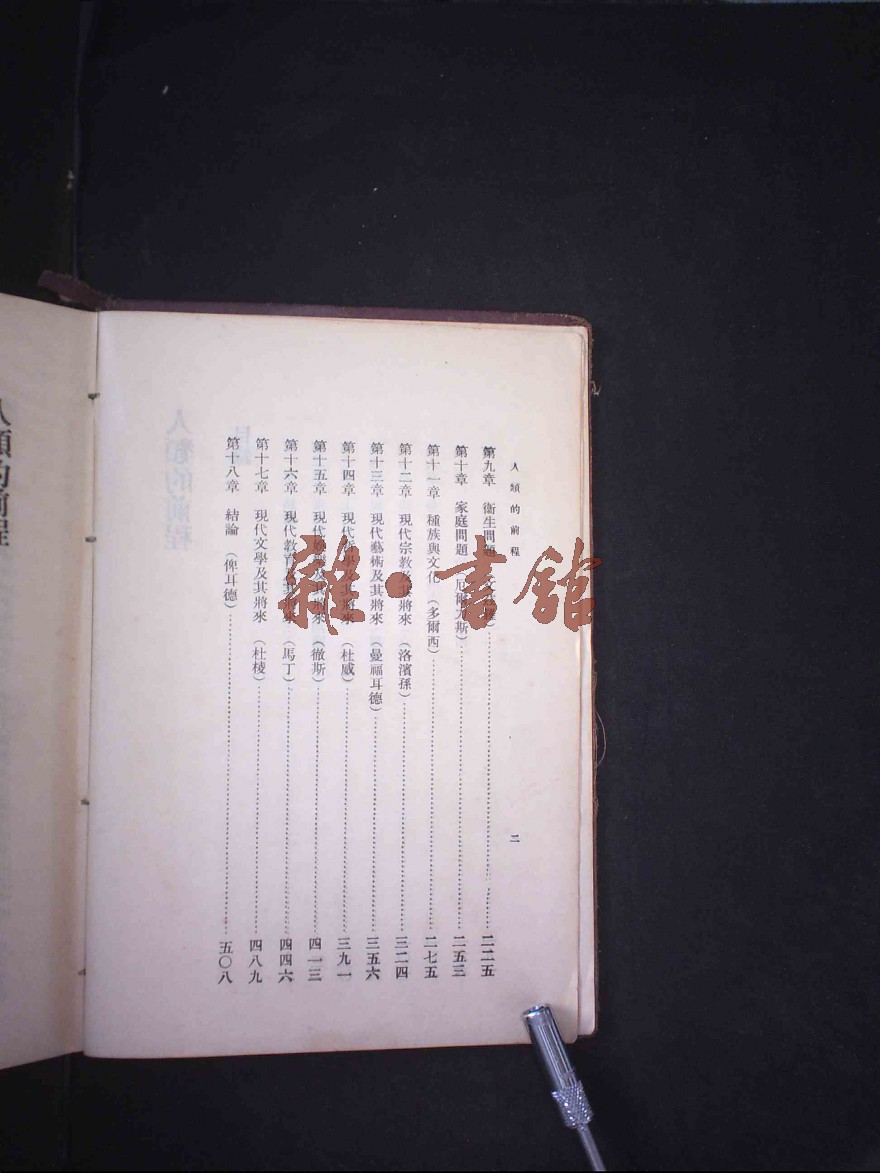 人類的前程
二
第九章 衞生問題 …… 二二五
第十章 家庭問題（厄爾大斯）…… 二五三
第十一章 種族與文化（多爾西）…… 二七五
第十二章 現代宗教及其將來（洛濱孫）…… 三二四
第十三章 現代藝術及其將來（曼福耳德）…… 三五六
第十四章 現代哲學及其將來（杜威）…… 三九一
第十五章 現代 及其將來（徹斯）…… 四一三
第十六章 現代教育及其將來（馬丁）…… 四四六
第十七章 現代文學及其將來（杜棱）…… 四八九
第十八章 結論（俾耳德）…… 五〇八
雜·書館
人類的前程